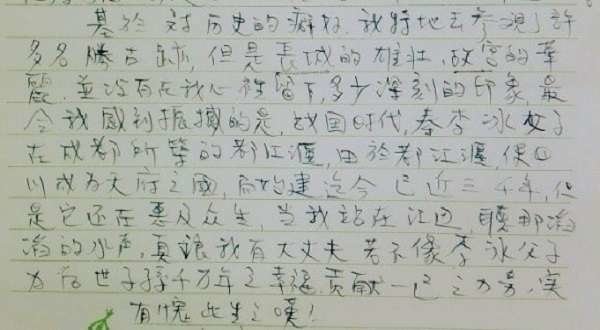 基於对历史的癖好,我特地去参观了許
多名勝古跡,但是長城的雄壮,故宮的華
麗,並没有在我心裡留下多少深刻的印象,最
令我感到振撼的是,战国时代,秦李冰父子
在成都所築的都江堰,由於都江堰,使四
川成为天府之國,而始建迄今已近三千年,但
是它还在惠及众生,当我站在江边,聽那滔
滔的水声,真讓我有大丈夫若不像李冰父子
为后世子孫千万年之幸福,贡献一己之力务,实
有愧此生之嘆!